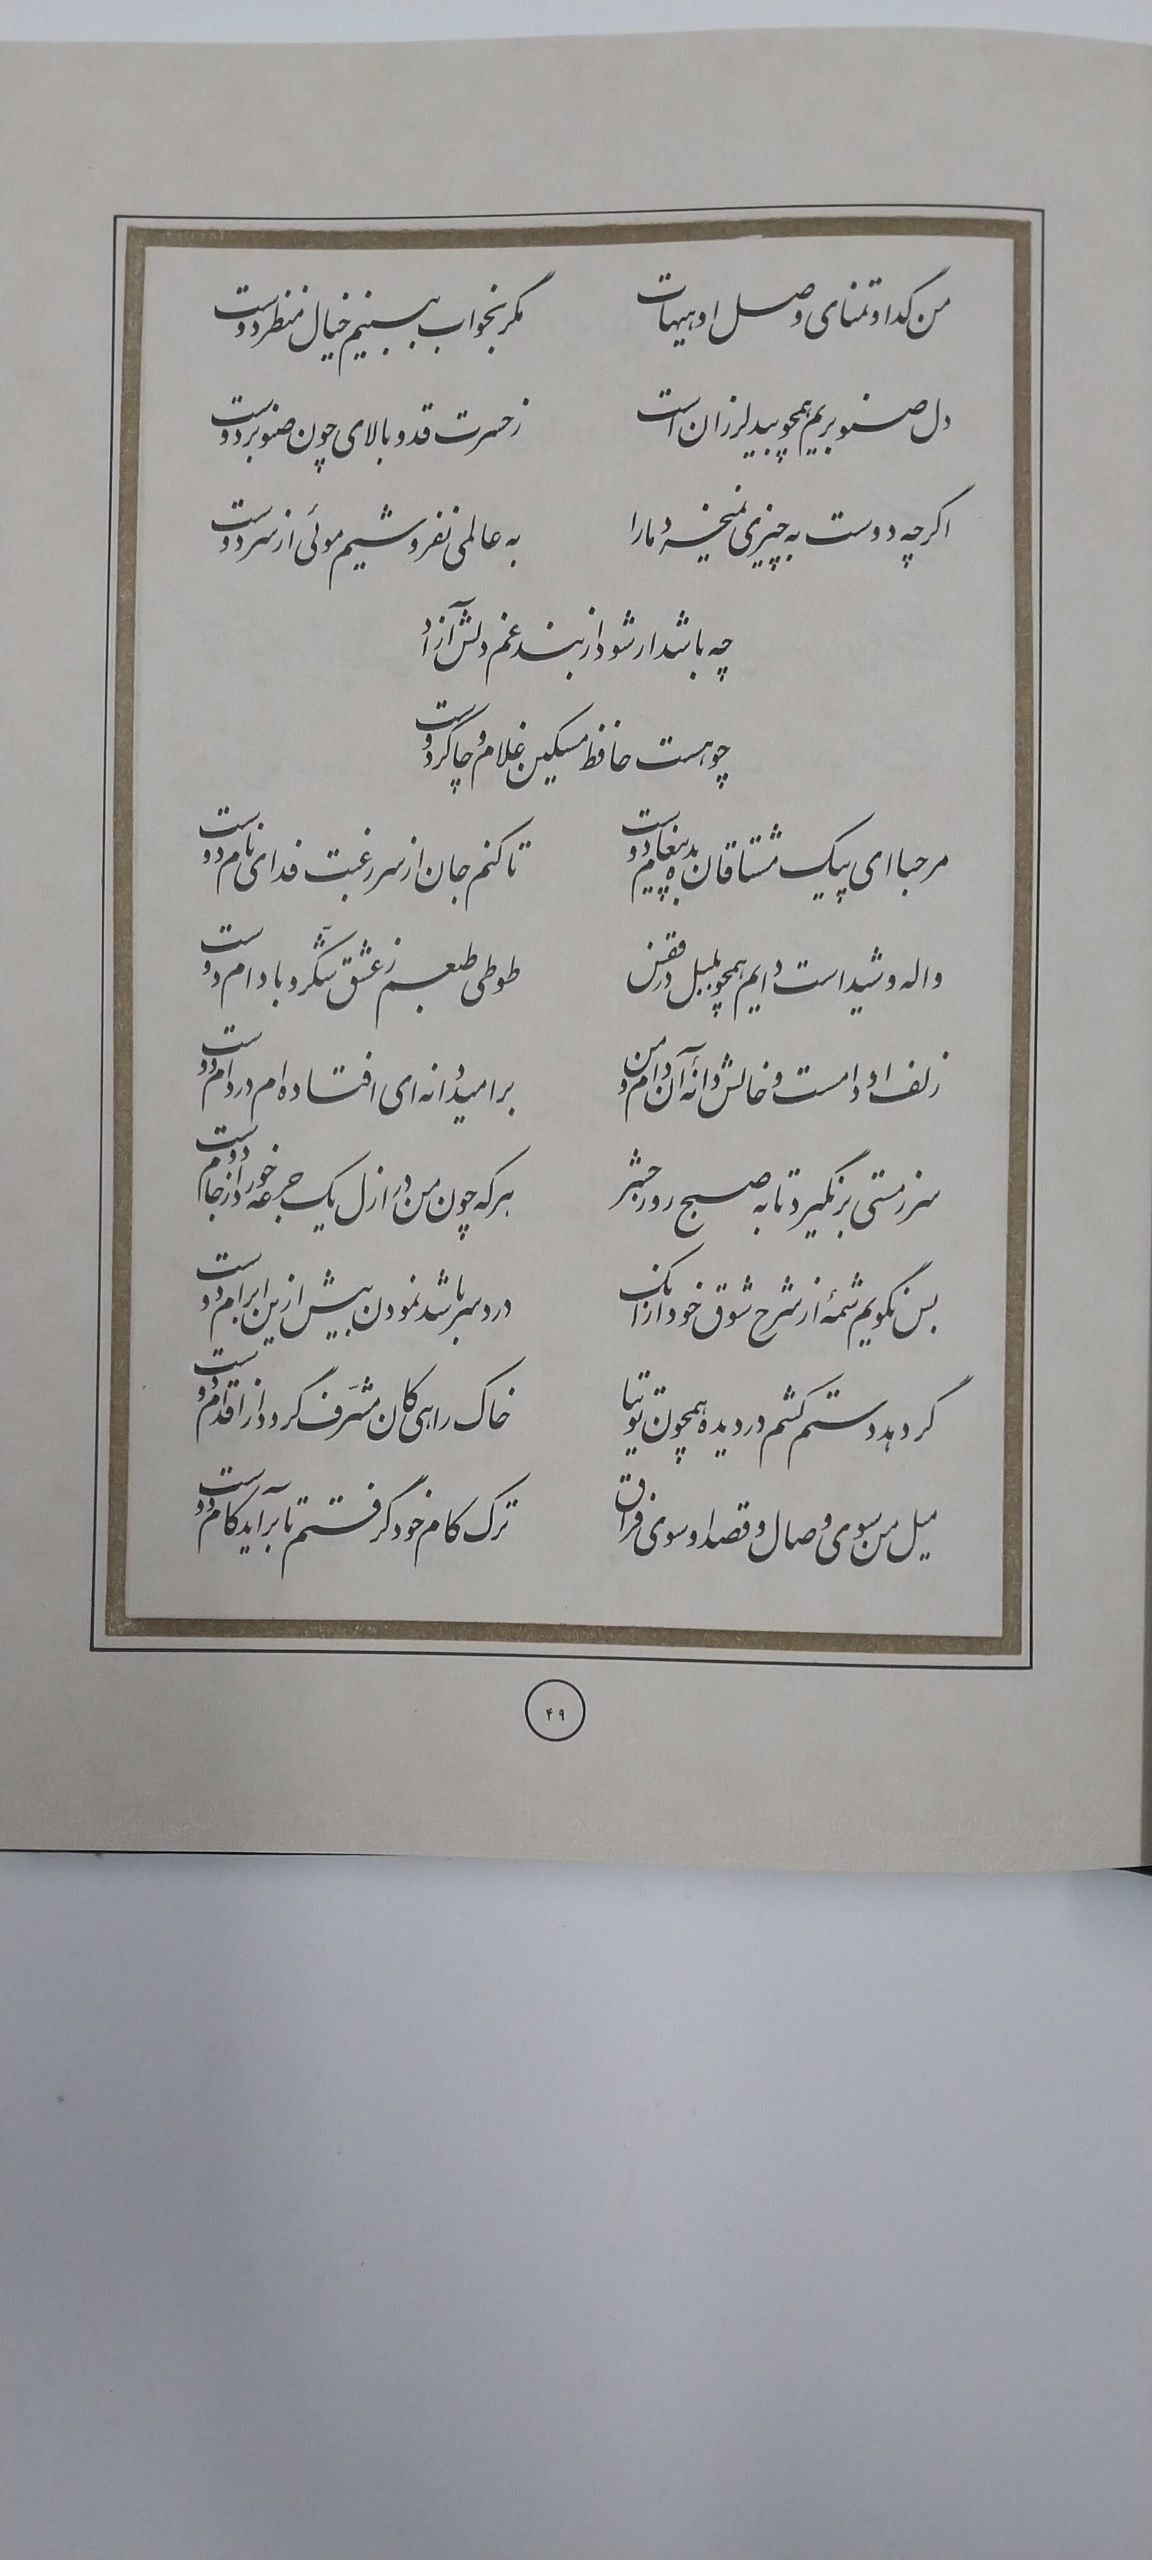 من گدا و تمنای وصل او هیهات مگر بخواب ببینم خیال منظر دوست
دل صنوبریم همچو بید لرزان است ز حسرت قد و بالای چون صنوبر دوست
اگرچه دوست به چیزی نمیخرد ما را به عالمی نفروشیم موئی از سر دوست
چه باشد ار شود از بند غم دلش آزاد
چو هست حافظ مسکین غلام و چاکر دوست
مرحبا ای پیک مشتاقان بده پیغام دوست تا کنم جان از سر رغبت فدای نام دوست
واله و شیداست دایم همچو بلبل در قفس طوطی طبعم ز عشق شکر و بادام دوست
زلف او دامست و خالش دانهٔ آن دام و من بر امید دانه‌ای افتاده‌ام در دام دوست
سر ز مستی بر نگیرد تا به صبح روز حشر هر که چون من در ازل یک جرعه خورد از جام دوست
بس نگویم شمهٔ از شرح شوق خود از آنک دردسر باشد نمودن بیش ازین ابرام دوست
گر دهد دستم کشم در دیده همچون توتیا خاک راهی کان مشرّف گردد از اقدام دوست
میل من سوی وصال و قصد او سوی فراق ترک کام خود گرفتم تا برآید کام دوست
۴۹